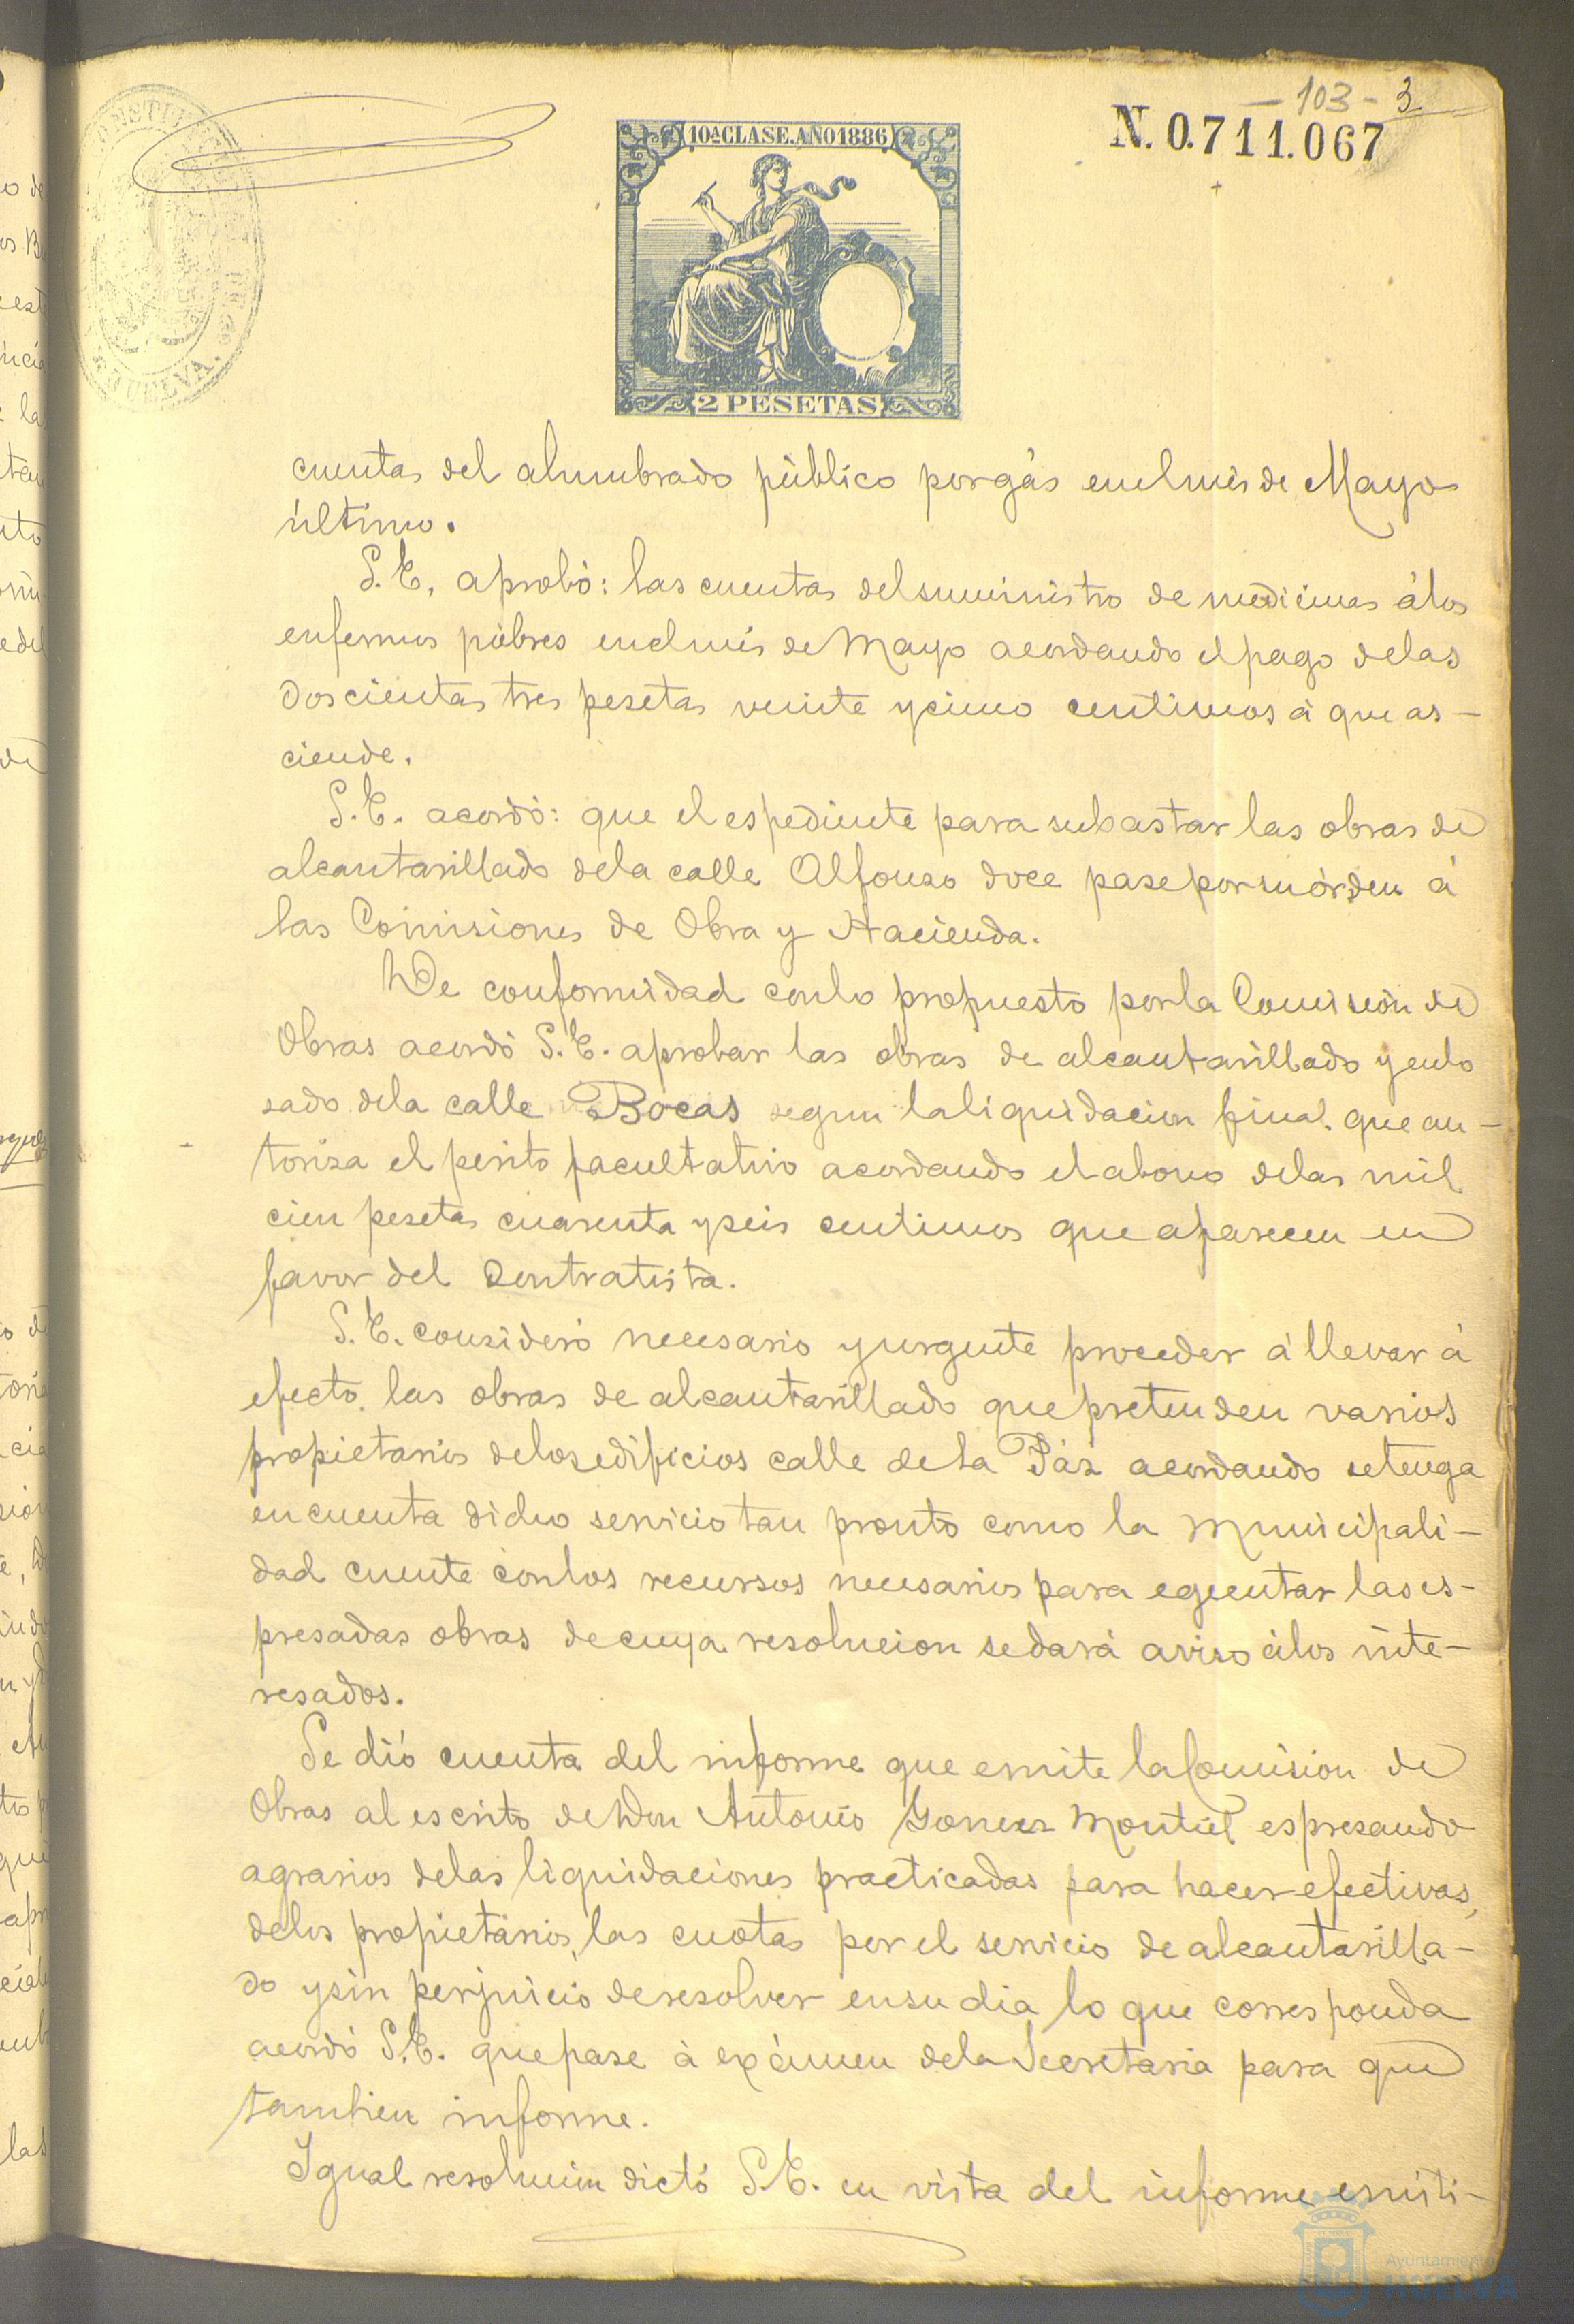 103 - 3
N. 0.711.067
10ª CLASE. AÑO 1886
2 PESETAS
CONSTITUC
HUELVA.
cuentas del alumbrado público por gás en el més de Mayo
último.
S. E. aprobó: las cuentas del suministro de medicinas á los
enfermos póbres en el més de Mayo acordando el pago de las
doscientas tres pesetas veinte y cinco centimos á que as-
ciende.
S. E. acordó: que el espediente para subastar las obras de
alcantarillado de la calle Alfonso doce pase por su órden á
las Comisiones de Obra y Hacienda.
De conformidad con lo propuesto por la Comisión de
Obras acordó S. E. aprobar las obras de alcantarillado y enlo
sado de la calle Bocas segun la liquidacion final que au-
toriza el perito facultativo acordando el abono de las mil
cien pesetas cuarenta y seis centimos que aparecen en
favor del Contratista.
S. E. consideró necesario y urgente proceder á llevar á
efecto las obras de alcantarillado que pretenden varios
propietarios de los edificios calle de la Páz acordando se tenga
en cuenta dicho servicio tan pronto como la Municipali-
dad cuente con los recursos necesarios para egecutar las es-
presadas obras de cuya resolucion se dará aviso á los inte-
resados.
Se dió cuenta del informe que emite la Comision de
Obras al escrito de Don Antonio Gomez Montiel espresando
agravios de las liquidaciones practicadas para hacer efectivas,
de los propietarios, las cuotas por el servicio de alcantarilla-
do y sin perjuicio de resolver en su dia lo que corresponda
acordó S. E. que pase á exámen de la Secretaria para que
tambien informe.
Igual resolucion dictó S. E. en vista del informe emiti-
Ayuntamiento
HUELVA